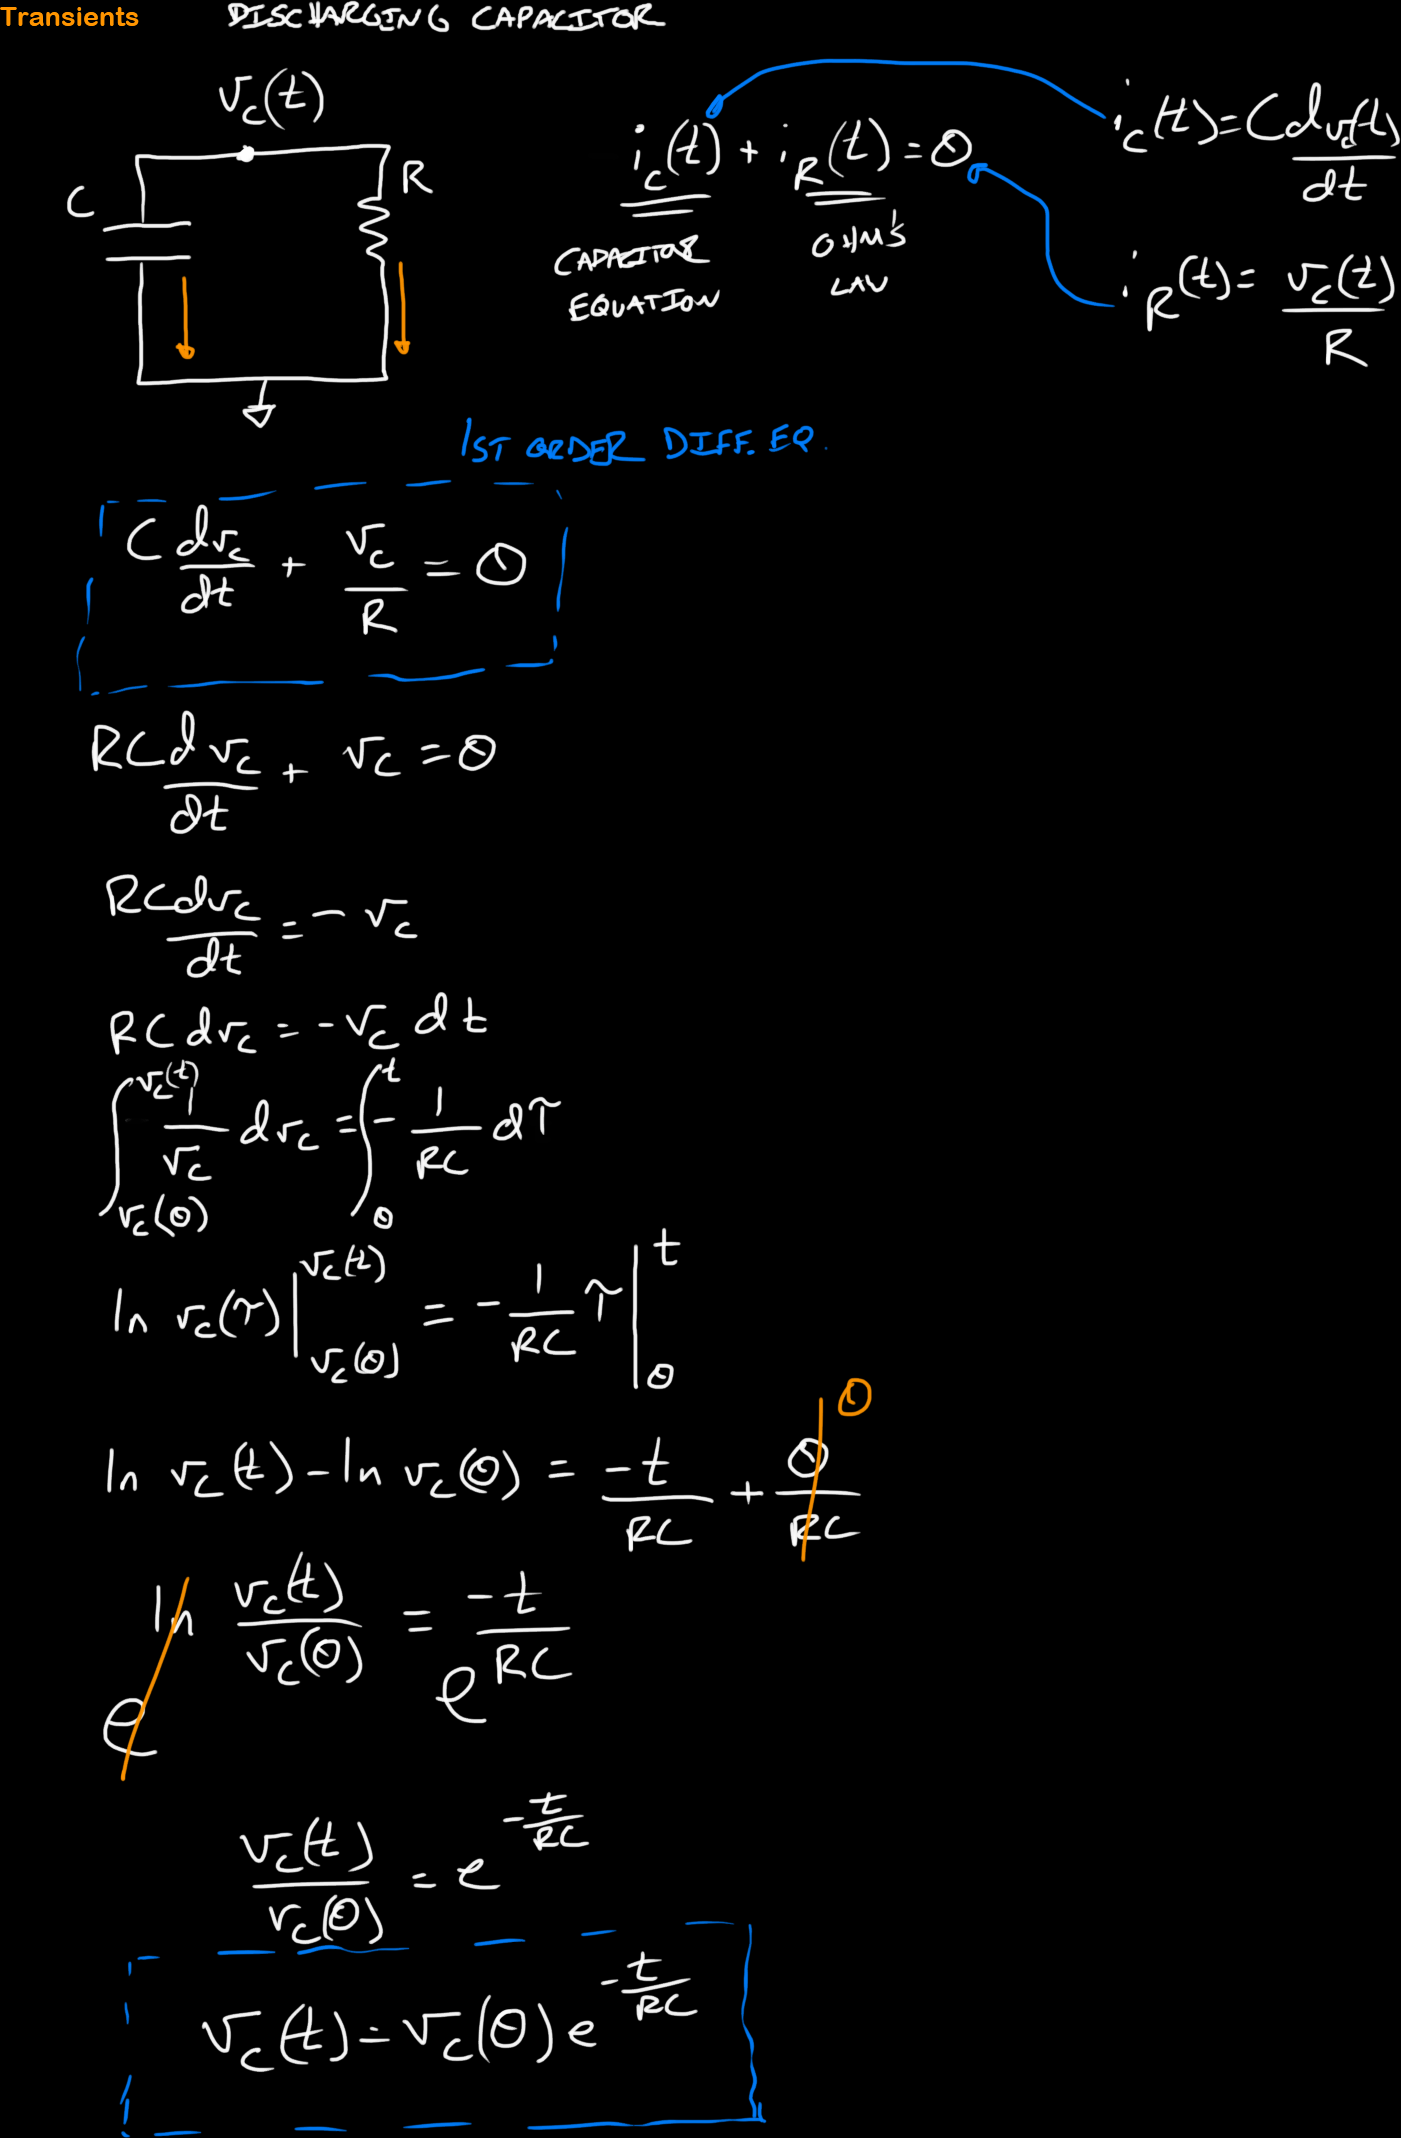 Transients
DISCHARGING CAPACITOR
v_c(t)
C
R
i_c(t) + i_R(t) = 0
CAPACITOR
EQUATION
OHM'S
LAW
i_c(t) = C dv_c(t)/dt
i_R(t) = v_c(t)/R
1ST ORDER DIFF. EQ.
C dv_c/dt + v_c/R = 0
RC dv_c/dt + v_c = 0
RC dv_c/dt = - v_c
RC dv_c = - v_c dt
∫_{v_c(0)}^{v_c(t)} 1/v_c dv_c = ∫_0^t - 1/RC dτ
ln v_c(τ) |_{v_c(0)}^{v_c(t)} = - 1/RC τ |_0^t
ln v_c(t) - ln v_c(0) = -t/RC + 0/RC 0
e^{ln v_c(t)/v_c(0)} = e^{-t/RC}
v_c(t)/v_c(0) = e^{-t/RC}
v_c(t) = v_c(0) e^{-t/RC}